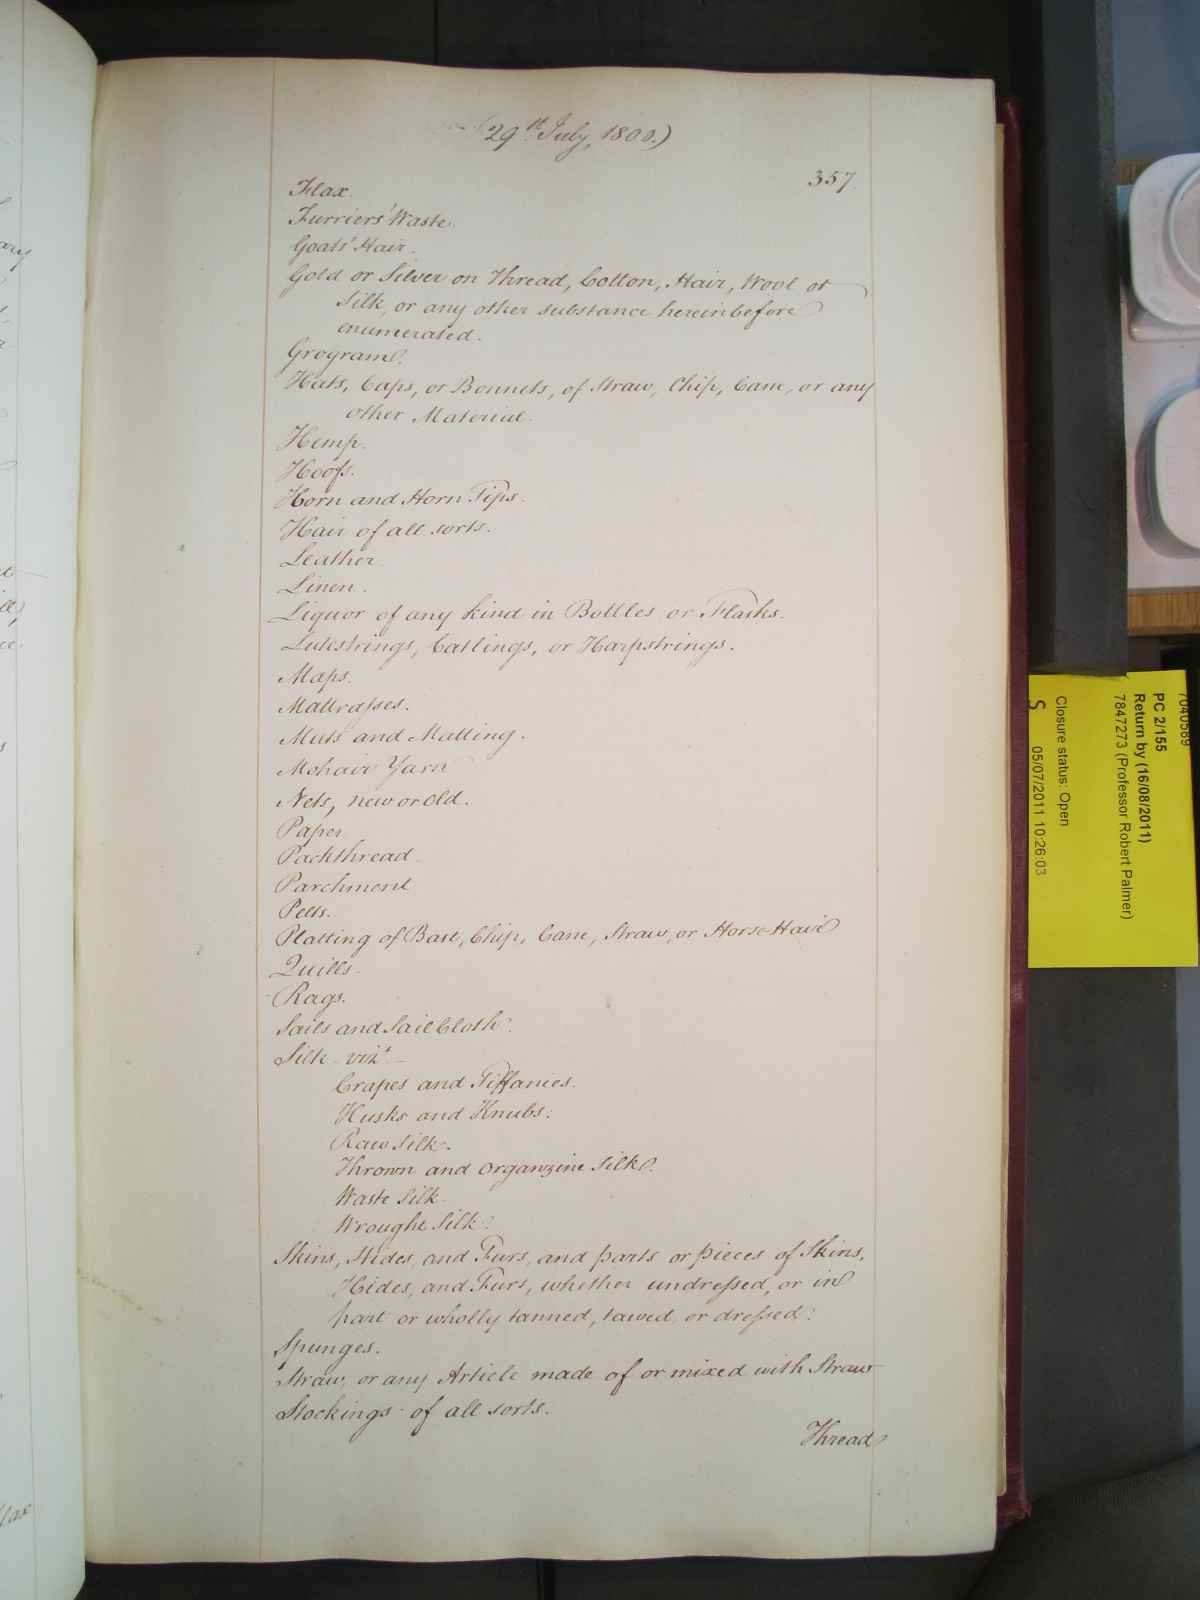 (29th July, 1800.)
357.
Flax.
Furriers' Waste.
Goats' Hair.
Gold or Silver on Thread, Cotton, Hair, Wool or
Silk, or any other substance hereinbefore
enumerated.
Grogram.
Hats, Caps, or Bonnets, of Straw, Chip, Cane, or any
other Material.
Hemp.
Hoofs.
Horn and Horn Tips.
Hair of all sorts.
Leather.
Linen.
Liquor of any kind in Bottles or Flasks.
Lutestrings, Catlings, or Harpstrings.
Maps.
Mattrasses.
Mats and Matting.
Mohair Yarn
Nets, new or old.
Paper.
Packthread.
Parchment
Pelts.
Platting of Bast, Chip, Cane, Straw, or Horse-Hair
Quills.
Rags.
Sails and Sail Cloth.
Silk - vizt. -
Crapes and Tiffanies.
Husks and Knubs.
Raw Silk.
Thrown and Organzine Silk.
Waste Silk.
Wrought Silk.
Skins, Hides, and Furs, and parts or pieces of Skins,
Hides, and Furs, whether undressed, or in
part or wholly tanned, tawed, or dressed.
Spunges.
Straw, or any Article made of or mixed with Straw
Stockings of all sorts.
Thread
7040589
PC 2/155
Return by (16/08/2011)
7847273 (Professor Robert Palmer)
Closure status: Open
S 05/07/2011 10:26:03